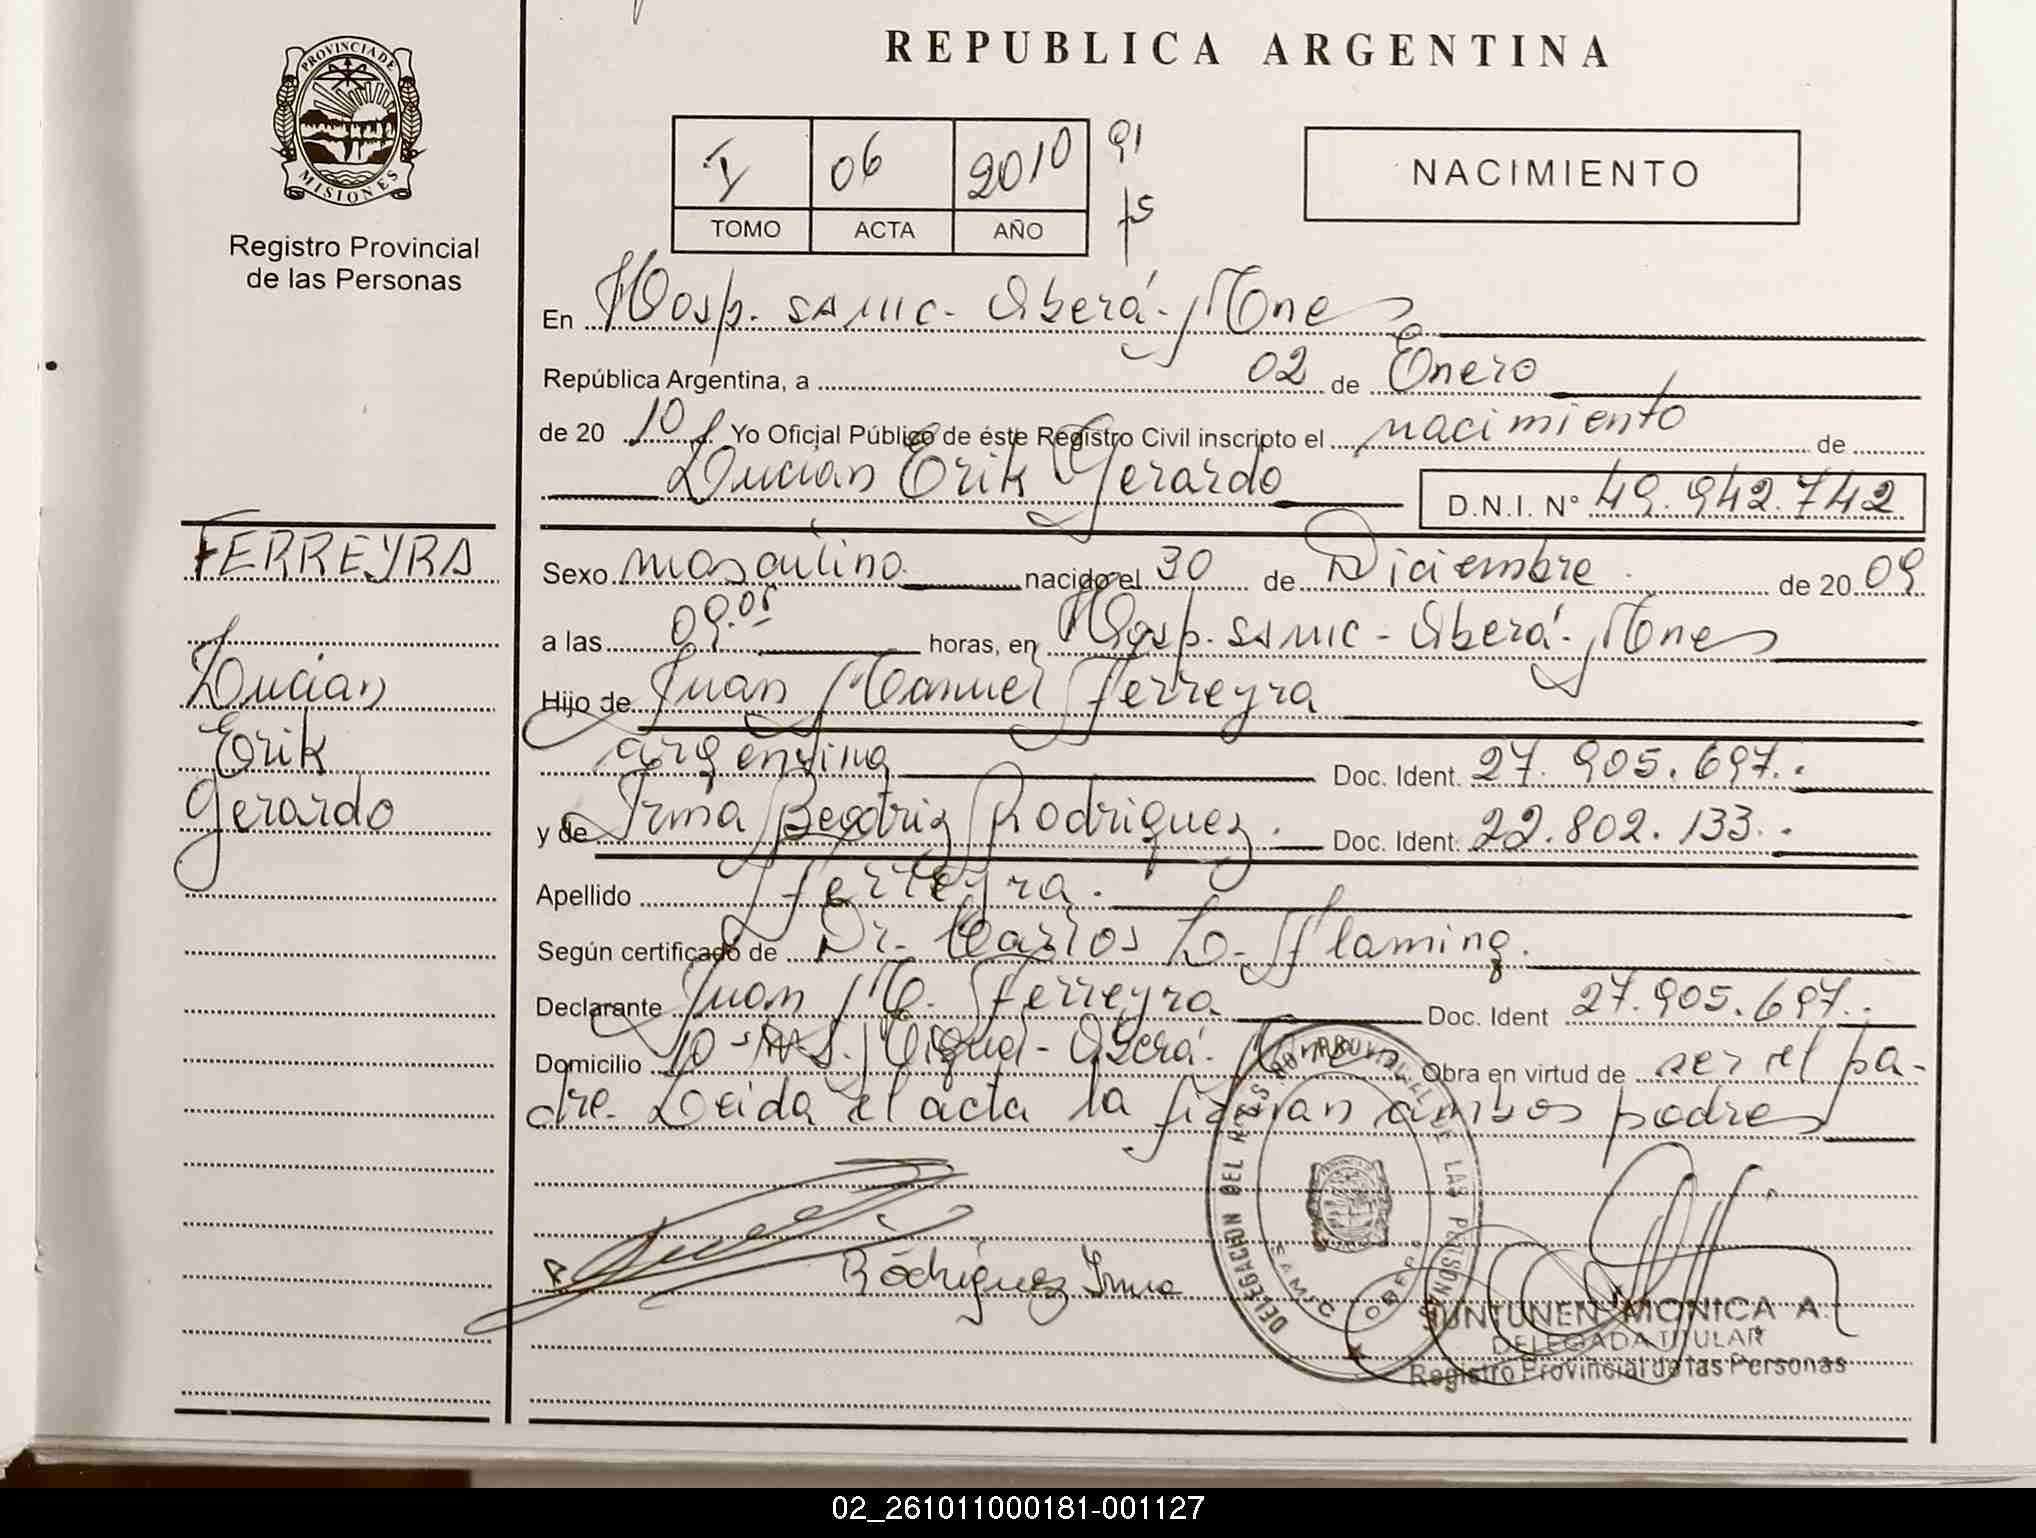 PROVINCIA DE
MISIONES
Registro Provincial
de las Personas
REPUBLICA ARGENTINA
I 06 2010 91
TOMO ACTA AÑO fs
NACIMIENTO
En Hosp. SAMIC - Oberá - Mnes
República Argentina, a 02 de Enero
de 20 10 Yo Oficial Público de éste Registro Civil inscripto el nacimiento de
Lucian Erik Gerardo D.N.I. Nº 49.942.742
FERREYRA
Sexo masculino nacido el 30 de Diciembre de 20 09
a las 09.05 horas, en Hosp. SAMIC - Oberá - Mnes
Lucian
Erik
Gerardo
Hijo de Juan Manuel Ferreyra
argentino Doc. Ident. 27.905.697.
y de Irma Beatriz Rodriguez. Doc. Ident. 22.802.133.
Apellido Ferreyra.
Según certificado de Dr. Carlos L. Flaming.
Declarante Juan M. Ferreyra Doc. Ident 27.905.697.
Domicilio S. Miguel - Oberá - Obra en virtud de ser el pa-
dre. Leida el acta la firman ambos padres
Rodriguez Irma
DELEGACION DEL REG. PROVINCIAL DE LAS PERSONAS
SAMIC OBERA
MONICA A.
DELEGADA TITULAR
Registro Provincial de las Personas
02_261011000181-001127